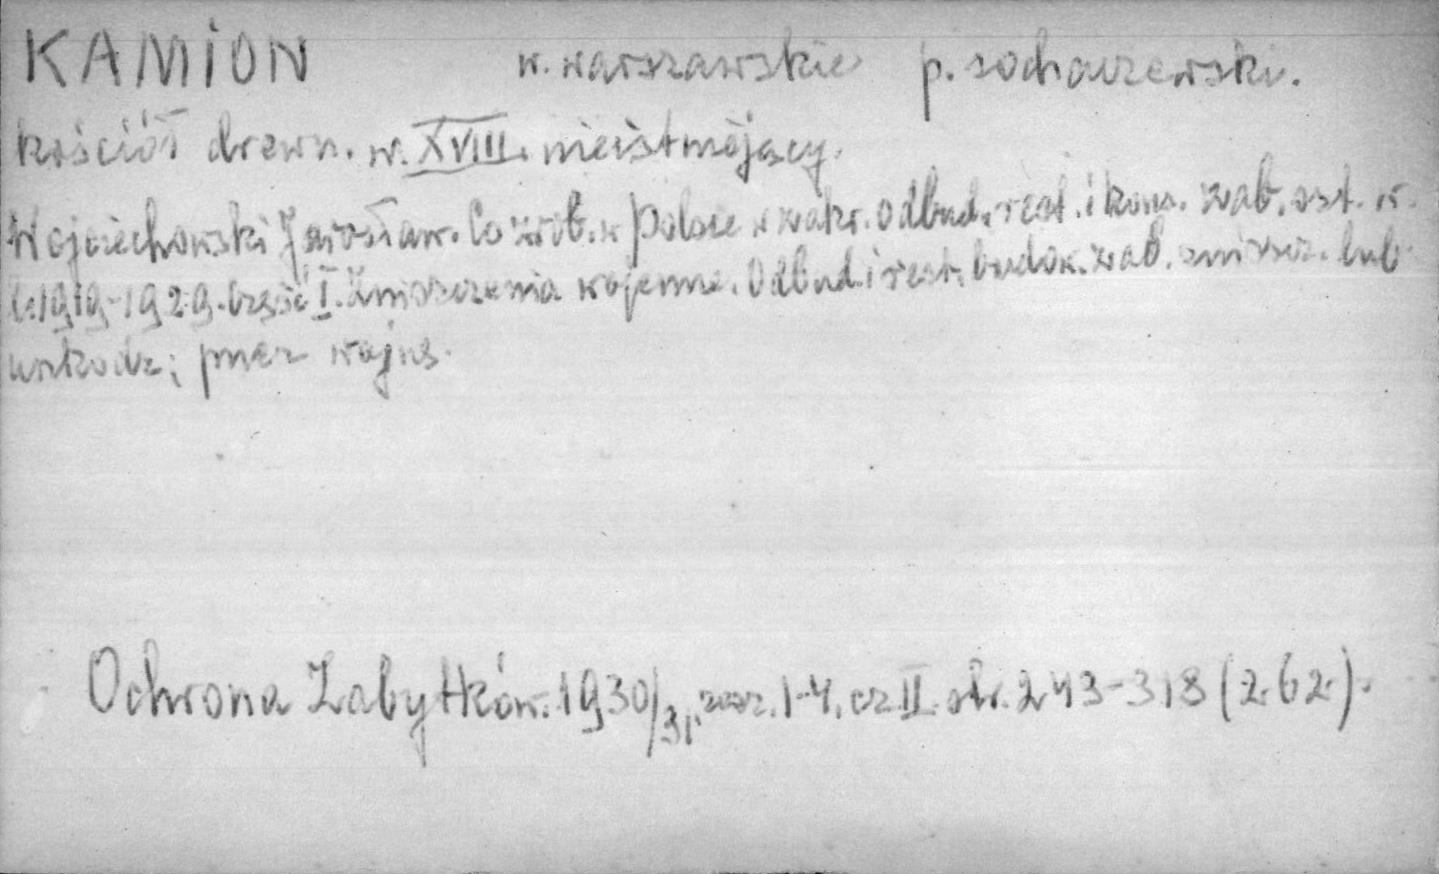 KAMION w. warszawskie p. sochaczewski.
kościół drewn. w. XVIII. nieistniejący.
Wojciechowski Jarosław. Co zrob. w Polsce w zakr. odbud. rest. i kons. zab. szt. w
l. 1919-1929. Część I. Zniszczenia wojenne. Odbud. i rest. budow. zab. zniszcz. lub
uszkodz; przez wojnę.
Ochrona Zabytków. 1930/31. zesz. 1-4. cz. II. str. 243-318 (262).